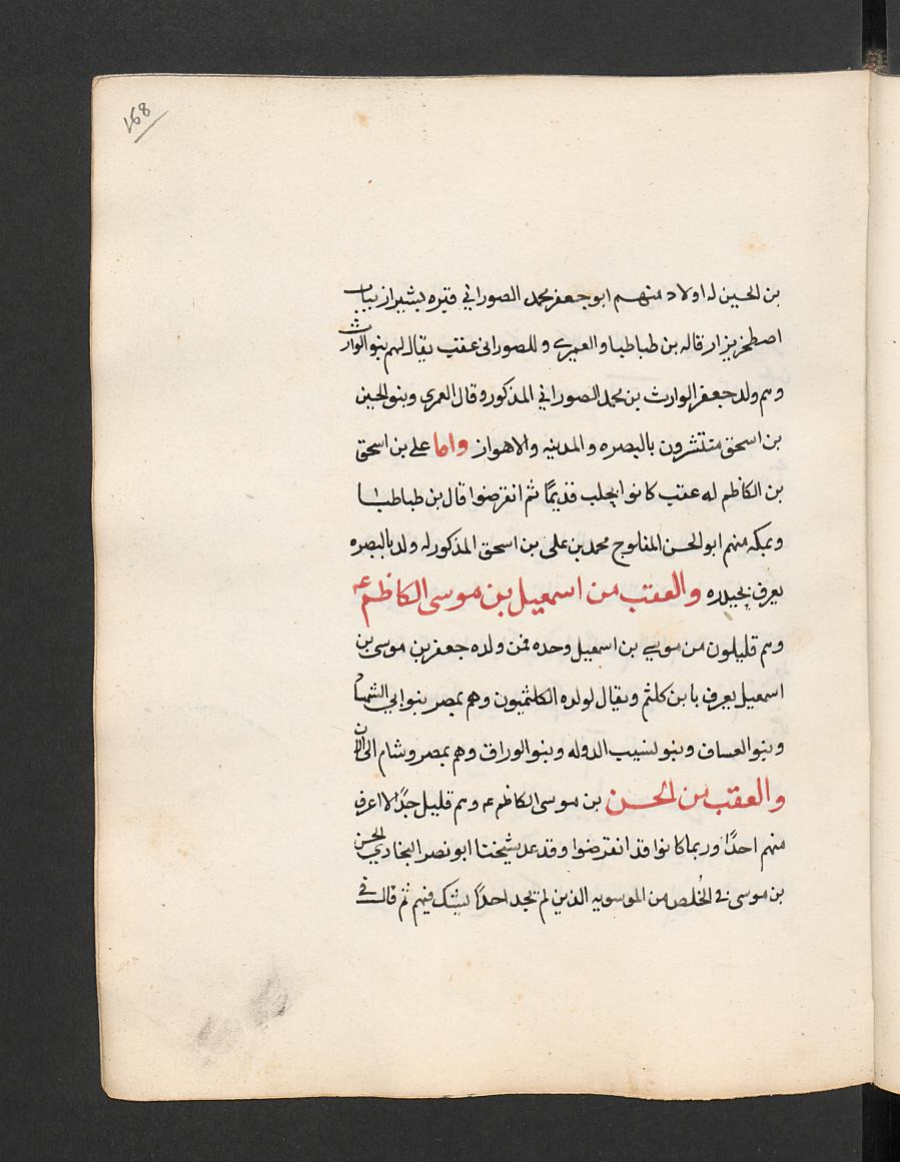 168
بن الحسين له اولاد منهم ابو جعفر محمد الصوراني قبره بشيراز بباب
اصطخر يزار قاله بن طباطبا والعمري وللصوراني عقب يقال لهم بنو الوارث
وهم ولد جعفر الوارث بن محمد الصوراني المذكور وقال العمري وبنو الحسين
بن اسحق منتشرون بالبصره والمدينه والاهواز واما علي بن اسحق
بن الكاظم له عقب كانوا بحلب قديمًا ثم انقرضوا قال بن طباطبا
وبمكه منهم ابو الحسن المفلوج محمد بن علي بن اسحق المذكور له ولد بالبصره
يعرف والعقب من اسمعيل بن موسى الكاظم ع
وهم قليلون من موسي بن اسمعيل وحده فمن ولده جعفر بن موسى بن
اسمعيل يعرف بابن كلثم ويقال لولده الكلثميون وهم بمصر بنو ابي
وبنو العساف وبنو نسيب الدوله وبنو الوراق وهم بمصر وشام الى الان
والعقب من الحسن بن موسى الكاظم ع وهم قليل جدًا لا اعرف
منهم احدًا وربما كانوا قد انقرضوا وقد عد شيخنا ابو نصر البخاري الحسن
بن موسى في الخُلص من الموسويه الذين لم نجد احدًا يشك فيهم ثم قال في